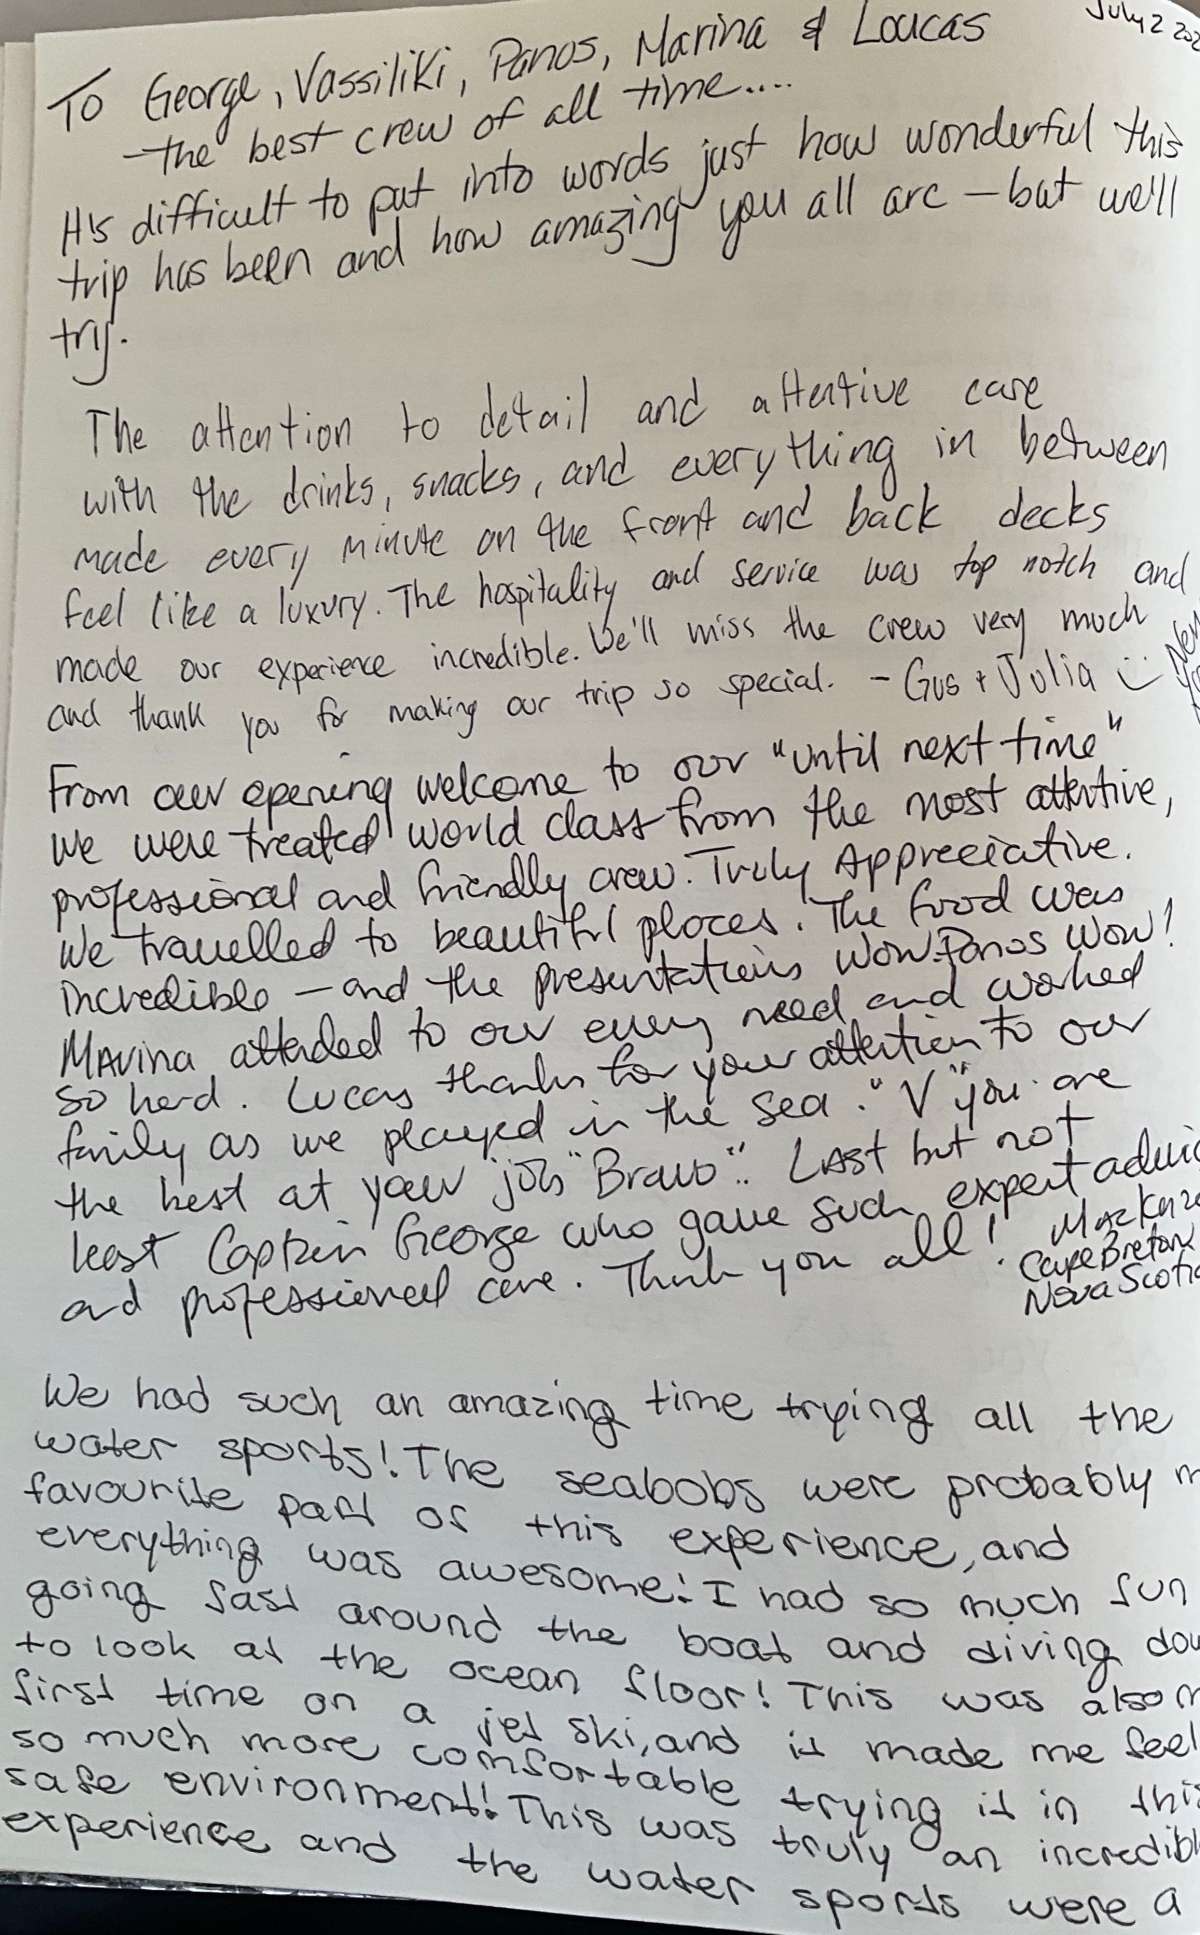 July 2 202
To George, Vassiliki, Panos, Marina & Loucas
- the best crew of all time....
It's difficult to put into words just how wonderful this
trip has been and how amazing you all are - but we'll
try.
The attention to detail and attentive care
with the drinks, snacks, and everything in between
made every minute on the front and back decks
feel like a luxury. The hospitality and service was top notch and
made our experience incredible. We'll miss the crew very much
and thank you for making our trip so special. - Gus + Julia
New
From our opening welcome to our "until next time"
we were treated world class from the most attentive,
professional and friendly crew. Truly Appreciative.
We travelled to beautiful places. The food was
incredible - and the presentations Wow. Panos Wow!
Marina attended to our every need and worked
so hard. Lucas thanks for your attention to our
family as we played in the sea. "V" you are
the best at your job "Bravo". Last but not
least Captain George who gave such expert advic
and professional care. Thank you all!
Cape Breton
Nova Scotia
We had such an amazing time trying all the
water sports! The seabobs were probably m
favourite part of this experience, and
everything was awesome! I had so much fun
going fast around the boat and diving dow
to look at the ocean floor! This was also m
first time on a jet ski, and it made me feel
so much more comfortable trying it in this
safe environment! This was truly an incredibl
experience and the water sports were a